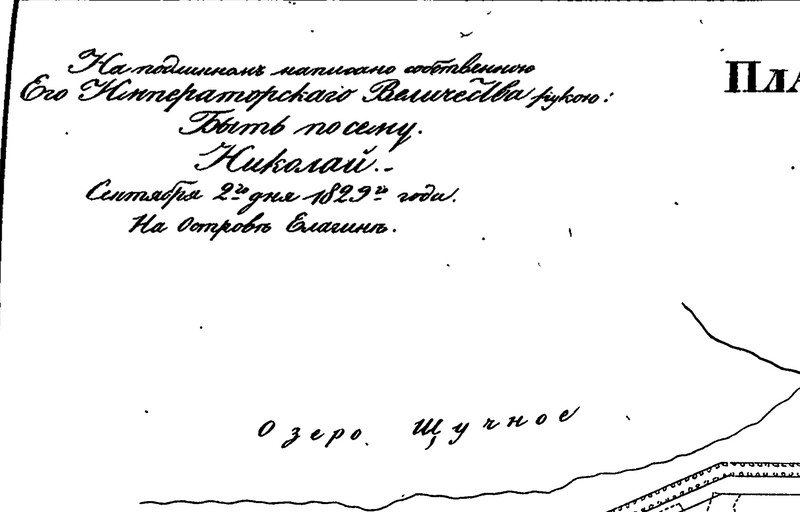 На подлинномъ написано собственною
Его Императорскаго Величества рукою:
Быть по сему.
Николай.
Сентября 2го дня 1829го года.
На Островѣ Елагинѣ.
ПЛА
Озеро Щучное